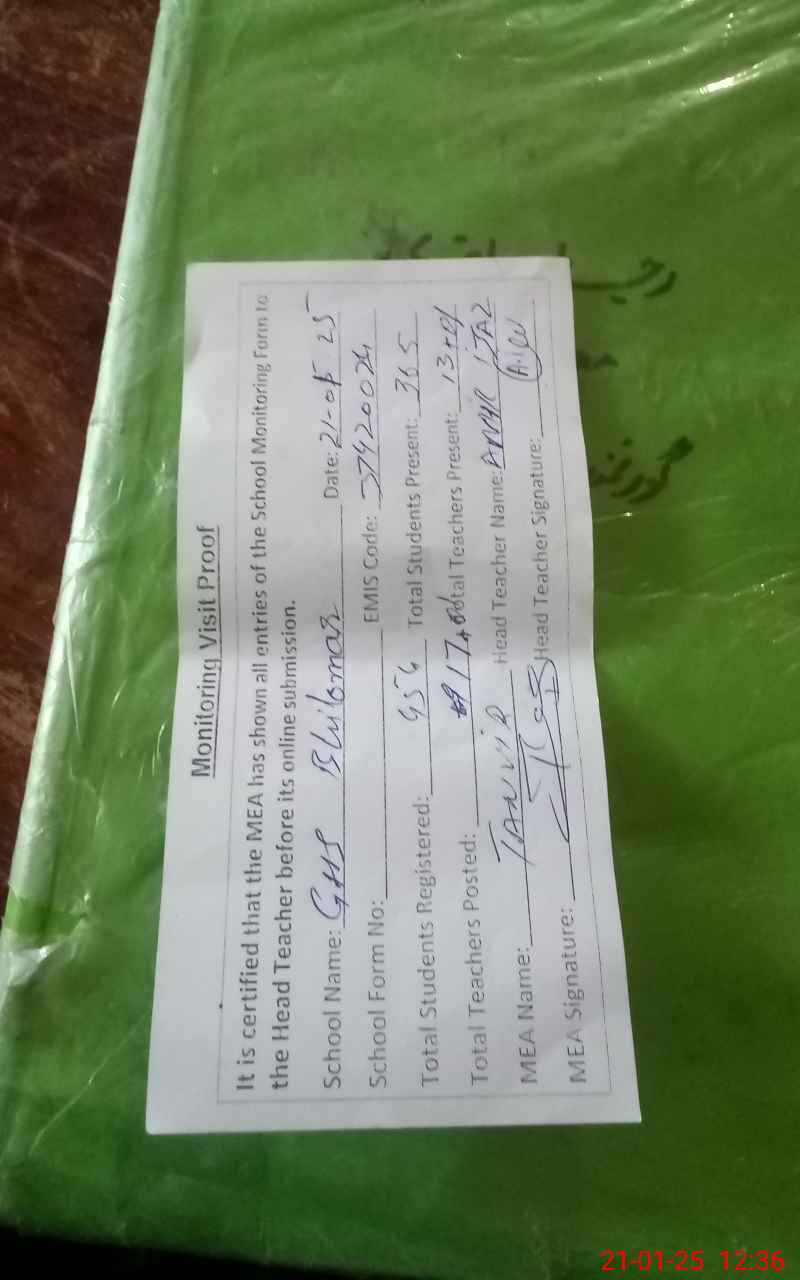 Monitoring Visit Proof
It is certified that the MEA has shown all entries of the School Monitoring Form to
the Head Teacher before its online submission.
School Name: GHS Bhilomar Date: 21-01-25
School Form No: EMIS Code: 37420024
Total Students Registered: 456 Total Students Present: 365
Total Teachers Posted: 17+01 Total Teachers Present: 13+01
MEA Name: TANVIR Head Teacher Name:
MEA Signature: Head Teacher Signature:
21-01-25 12:36